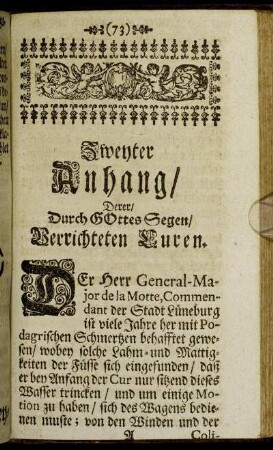 (73)
Zweyter
Anhang/
Derer/
Durch GOttes Segen/
Verrichteten Curen.
DEr Herr General-Ma-
jor de la Motte, Commen-
dant der Stadt Lüneburg
ist viele Jahre her mit Po-
dagrischen Schmertzen behafftet gewe-
sen/ wobey solche Lahm- und Mattig-
keiten der Füsse sich eingefunden/ daß
er bey Anfang der Cur nur sitzend dieses
Wasser trincken/ und um einige Mo-
tion zu haben/ sich des Wagens bedie-
nen muste; von den Winden und der
A Coli-